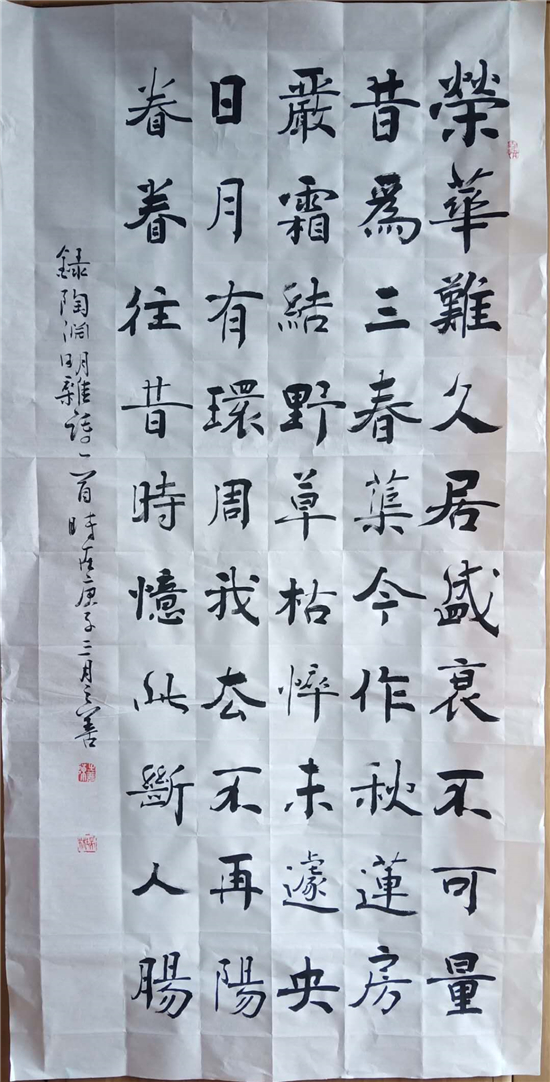 榮華難久居盛衰不可量
昔為三春蕖今作秋蓮房
嚴霜結野草枯悴未遽央
日月有環周我去不再陽
眷眷往昔時憶此斷人腸
録陶渊明雜詩一首時在庚子三月之善